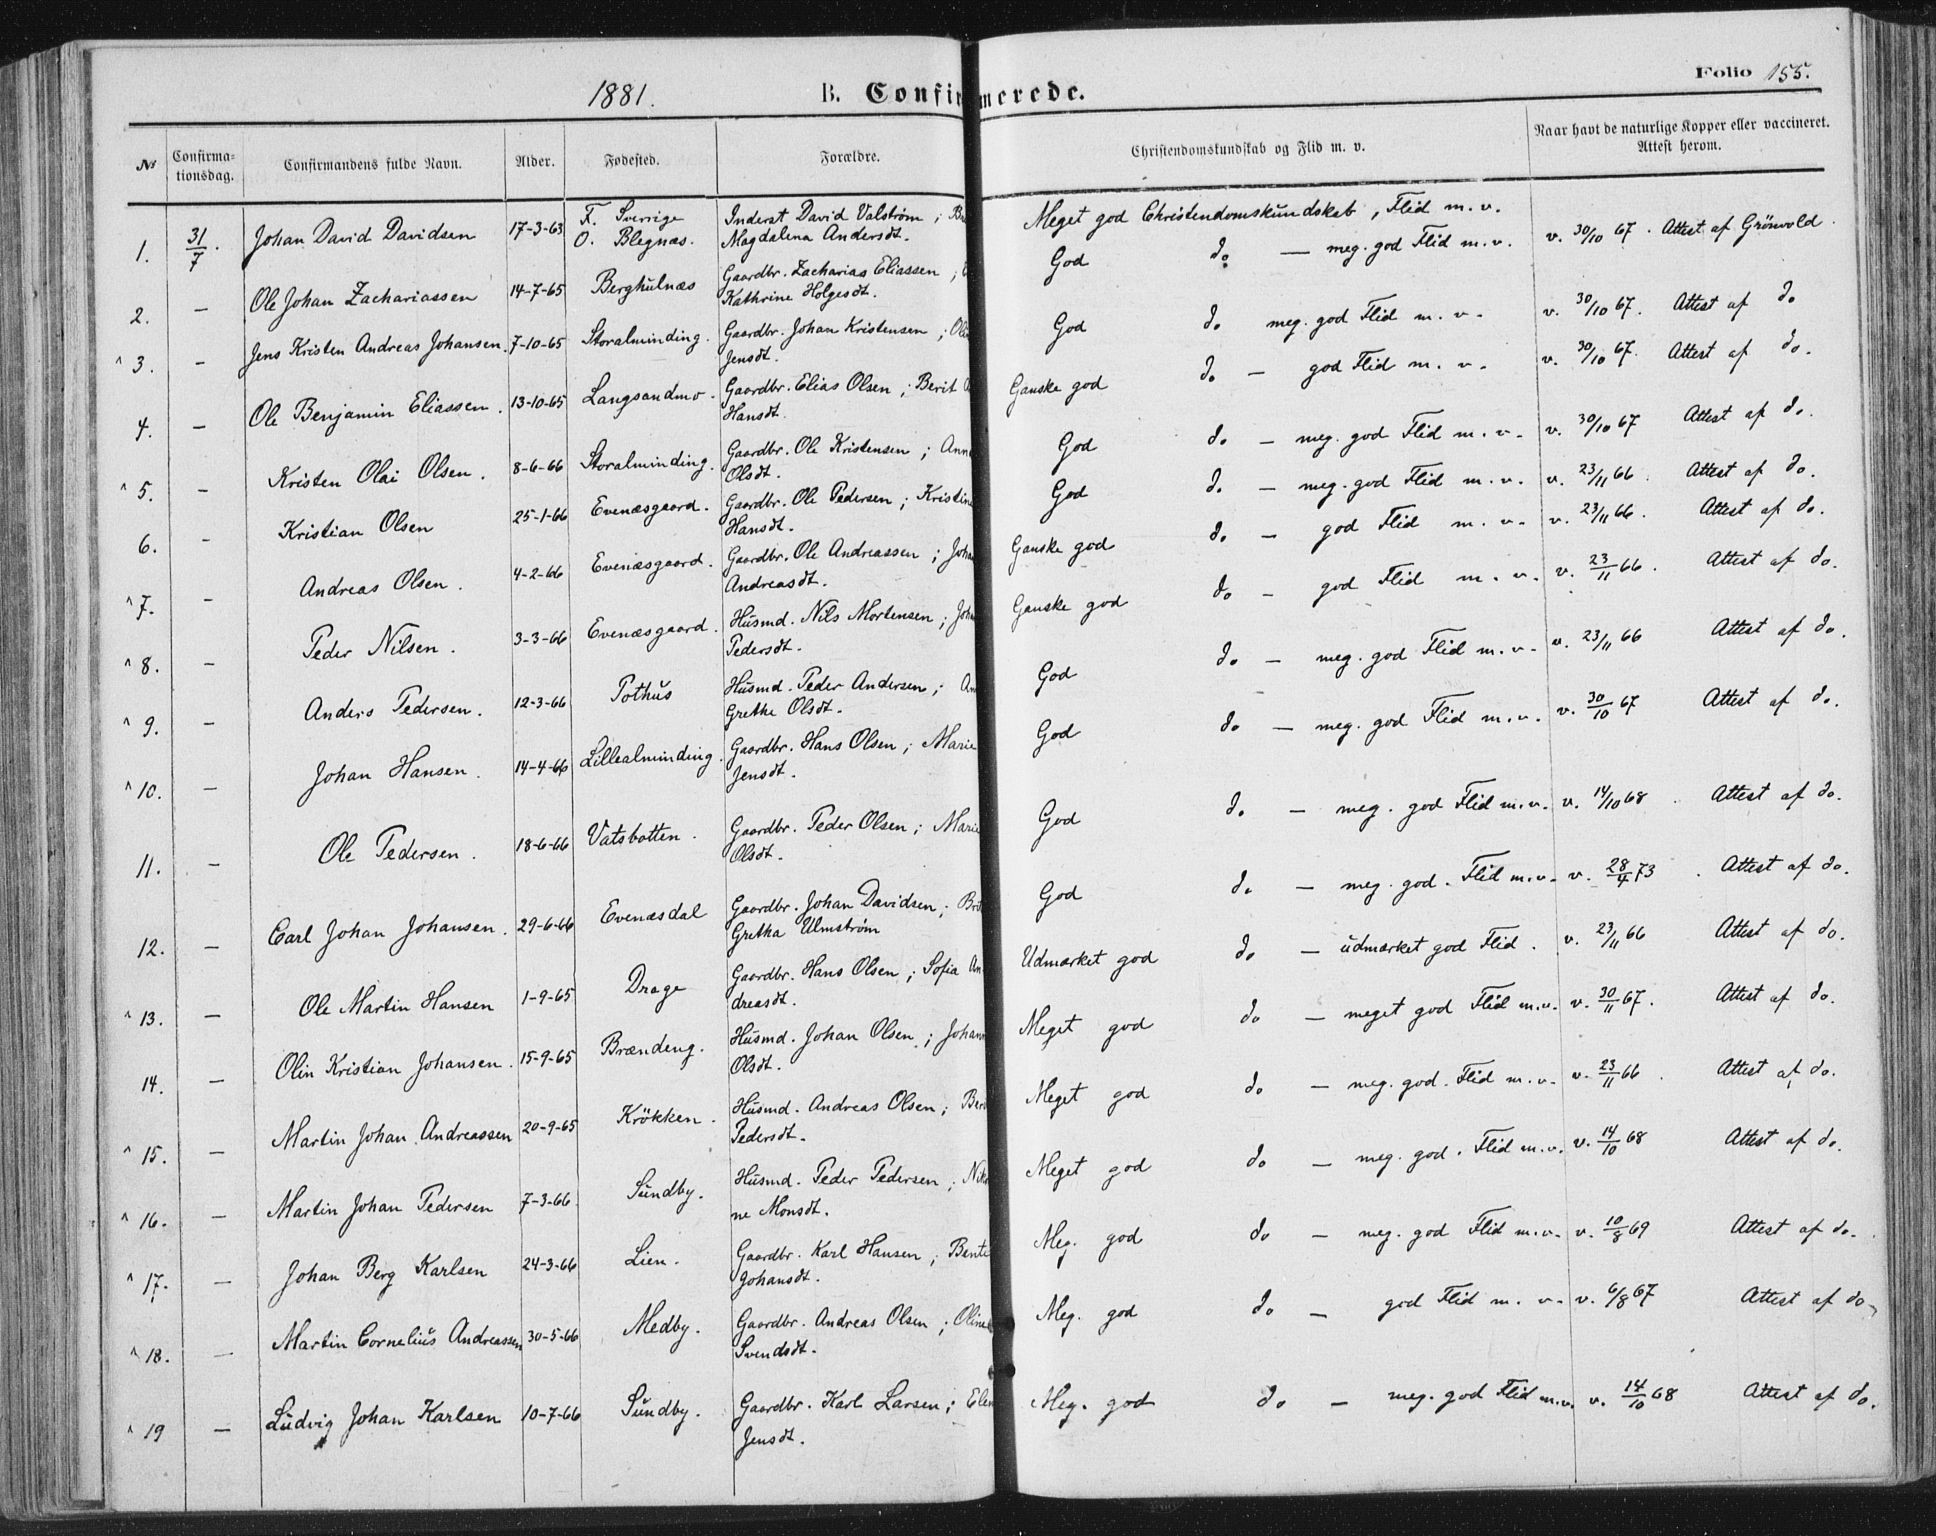 1881.
B. Confirmerede.
Folio 155.
No
Confirma-
tionsdag.
Confirmandens fulde Navn.
Alder.
Fødested.
Forældre.
Christendomskundskab og Flid m. v.
Naar havt de naturlige Kopper eller vaccineret.
Attest herom.
1. 31/7. Johan David Davidsen 17-3-63 F. Sverrige Inderst David Valstrøm;
O. Blegnæs. Magdalena Andersdt.
Meget god Christendomskundskab, Flid m. v.
God do — meg. god Flid m. v. v. 30/10 67. Attest af Grönvold
2. — Ole Johan Zachariassen 14-7-65 Berghulnæs Gaardbr. Zacharias Eliassen;
Kathrine Holgesdt.
God do meg. god Flid m. v. v. 30/10 67. Attest af do
^ 3. — Jens Kristen Andreas Johansen. 7-10-65 Storalminding. Gaardbr. Johan Kristensen;
Jensdt.
Ganske god do — god Flid m. v. v. 30/10 67. Attest af do.
4. — Ole Benjamin Eliassen. 13-10-65 Langsandmo. Gaardbr. Elias Olsen; Berit
Hansdt.
God do — meg. god Flid m. v. v. 30/10 67 Attest af do.
^ 5. — Kristen Olai Olsen. 8-6-66 Storalminding. Gaardbr. Ole Kristensen; Ann
Olsdt.
God do. — meg. god Flid m. v. v. 23/11 66. Attest af do.
6. — Kristian Olsen 25-1-66 Evenæsgaard. Gaardbr. Ole Pedersen; Kristine
Hansdt.
Ganske god do — god Flid m. v. v. 23/11 66. Attest af do.
^ 7. — Andreas Olsen. 4-2-66 Evenæsgaard. Gaardbr. Ole Andreassen; Joha
Andreasdt.
Ganske god do — god Flid m. v. v. 23/11 66. Attest af do.
^ 8. — Peder Nilsen. 3-3-66 Evenæsgaard. Husmd. Nils Mortensen; Joha
Pedersdt.
God do — meg. god Flid m. v. v. 23/11 66 Attest af do.
^ 9. — Anders Pedersen. 12-3-66 Pothus Husmd. Peder Andersen; An
Grethe Olsdt.
God do — meg. god Flid m. v. v. 30/10 67 Attest af do.
^ 10. — Johan Hansen. 14-4-66 Lillealminding. Gaardbr. Hans Olsen; Marie
Jensdt.
God do. — meg. god Flid m. v. v. 14/10 68. Attest af do.
11. — Ole Pedersen. 18-6-66 Vatsbotten. Gaardbr. Peder Olsen; Marie
Olsdt.
God do. — meg. god. Flid m. v. v. 28/4 73. Attest af do.
12. — Carl Johan Johansen. 29-6-66 Evenæsdal Gaardbr. Johan Davidsen; Brit
Gretha Ulmstrøm
Udmærket god do — udmærket god Flid. v. 23/11 66 Attest af do.
^ 13. — Ole Martin Hansen 1-9-65 Drage Gaardbr. Hans Olsen; Sofia An
dreasdt.
Meget god do — meget god Flid m. v. v. 30/11 67. Attest af do.
14. — Olin Kristian Johansen. 15-9-65 Brændeng. Husmd. Johan Olsen; Johann
Olsdt.
Meget god do — meg. god. Flid m. v. v. 23/11 66. Attest af do.
^ 15. — Martin Johan Andreassen 20-9-65 Krökken. Husmd. Andreas Olsen; Ber
Pedersdt.
Meget god do — meg. god. Flid m. v. v. 14/10 68 Attest af do.
^ 16. — Martin Johan Pedersen 7-3-66. Sundby. Husmd. Peder Pedersen; Nik
ne Monsdt.
Meg. god do — meg. god Flid m. v. v. 10/8 69 Attest af do.
^ 17. — Johan Berg Karlsen 24-3-66 Lien. Gaardbr. Karl Hansen; Bente
Johansdt.
Meg. god do — god Flid m. v. v. 6/8 67 Attest af do.
^ 18. — Martin Cornelius Andreassen 30-5-66 Medby. Gaardbr. Andreas Olsen; Oline
Svendsdt.
Meg. god do — meg. god Flid m. v. v. 14/10 68 Attest af do.
^ 19 — Ludvig Johan Karlsen 10-7-66 Sundby. Gaardbr. Karl Larsen; Elen
Jensdt.